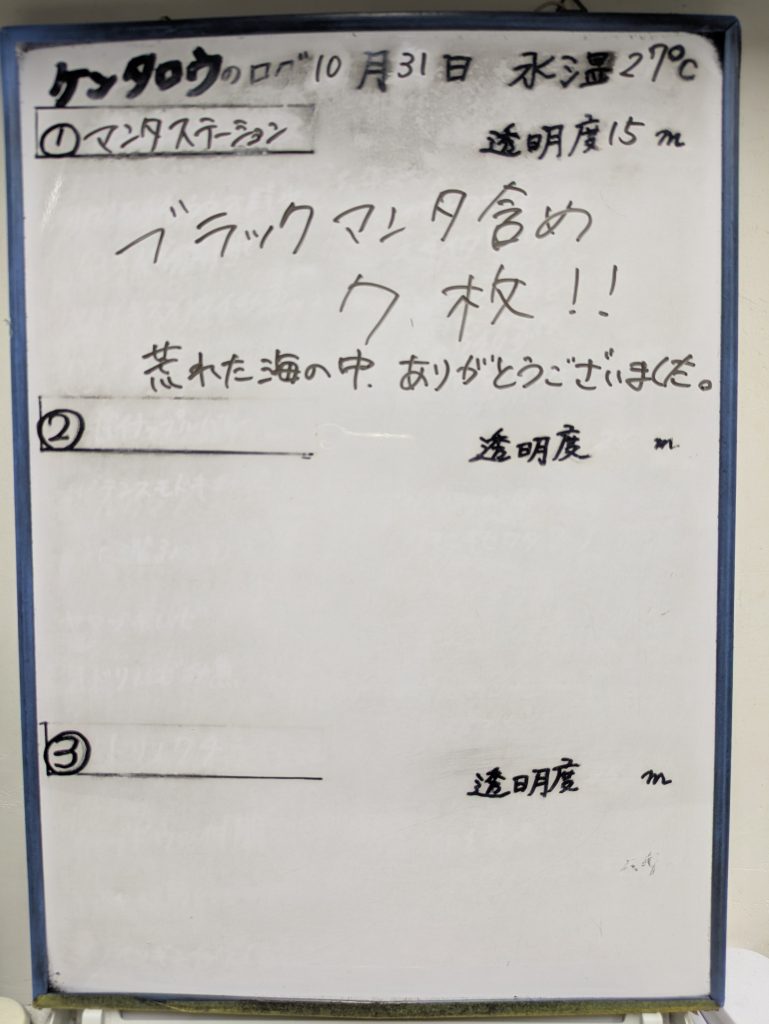 ケンタロウのログ 10月31日 水温27℃
①マンタステーション 透明度15m
ブラックマンタ含め
7枚!!
荒れた海の中、ありがとうございました。
② 透明度 m
③ 透明度 m